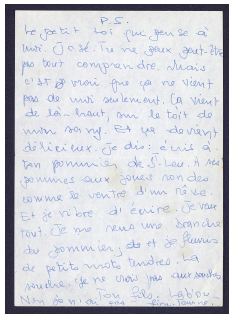 P.S.
Le petit toi qui pense à
moi. J'ose. Tu ne peux peut-être
pas tout comprendre. Mais
c'est vrai que ça ne vient
pas de moi seulement. Ça vient
de là-haut, sur le toit de
mon sang. Et ça devient
délicieux. Je dis: écris à
ton pommier de St-Leu. A ses
pommes aux joues rondes
comme le ventre d'un rêve.
Et je vibre d'écrire. Je veux
tout. Je me sens une branche
du pommier, et je fleuris
de petits mots tendres. La
Je ne crois pas aux
Ton fils.